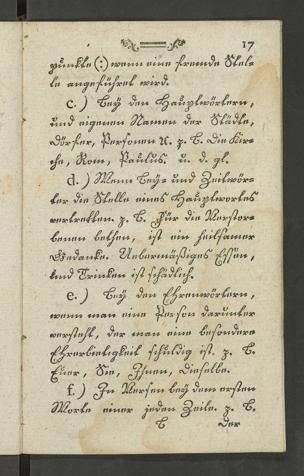 17
punkte (:) wenn eine fremde Stel-
le angeführet wird.
c.) Bey den Hauptwörtern,
und eigenen Namen der Städte,
Dörfer, Personen u. z. B. die Kir-
che, Rom, Paulus u. d. gl.
d.) Wenn Bey- und Zeitwör-
ter die Stelle eines Hauptwortes
vertretten. z. B. Für die Verstor-
benen bethen, ist ein heilsamer
Gedanke. Uebermäßiges Essen,
und Trinken ist schädlich.
e.) Bey den Ehrenwörtern,
wenn man eine Person darunter
versteht, der man eine besondere
Ehrerbietigkeit schuldig ist. z. B.
Euer, Sie, Ihnen, Dieselbe.
f.) In Versen bey dem ersten
Worte einer jeden Zeile. z. B.
B der